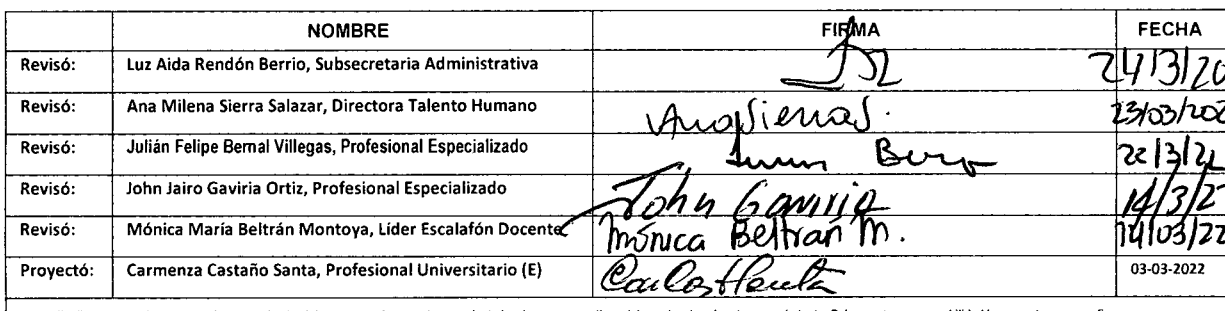 NOMBRE FIRMA FECHA
Revisó: Luz Aida Rendón Berrio, Subsecretaria Administrativa 24/3/20
Revisó: Ana Milena Sierra Salazar, Directora Talento Humano AnaSierraS. 23/03/202
Revisó: Julián Felipe Bernal Villegas, Profesional Especializado 22/3/22
Revisó: John Jairo Gaviria Ortiz, Profesional Especializado John Gaviria 14/3/2
Revisó: Mónica María Beltrán Montoya, Líder Escalafón Docente Mónica Beltrán M. 14/03/22
Proyectó: Carmenza Castaño Santa, Profesional Universitario (E) 03-03-2022